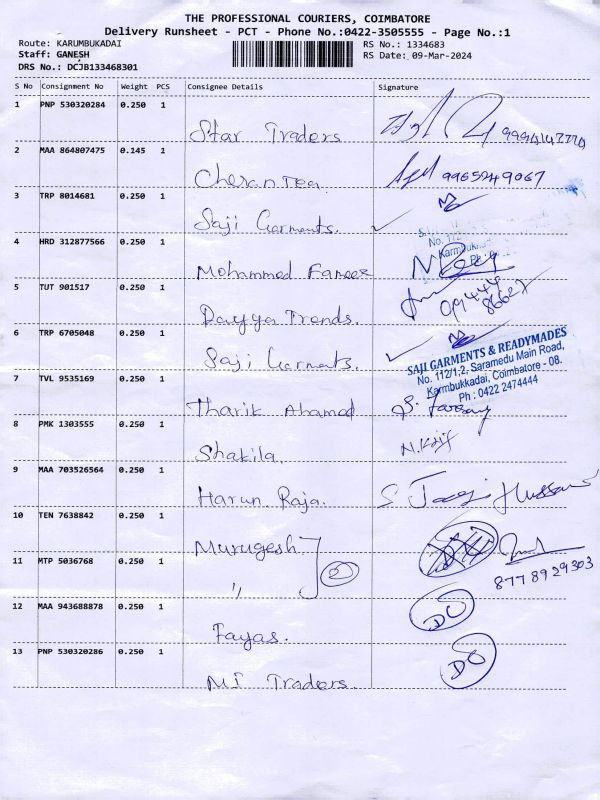 THE PROFESSIONAL COURIERS, COIMBATORE
Delivery Runsheet - PCT - Phone No.:0422-3505555 - Page No.:1
Route: KARUMBUKADAI
Staff: GANESH
DRS No.: DCJB133468301
RS No.: 1334683
RS Date: 09-Mar-2024
S No Consignment No Weight PCS Consignee Details Signature
1 PNP 530320284 0.250 1
Star Traders
2 MAA 864807475 0.145 1
Cheran Tea 9965949067
3 TRP 8014681 0.250 1
Saji Garments.
4 HRD 312877566 0.250 1
Mohammed Fareez
5 TUT 901517 0.250 1
Dayya Trends.
6 TRP 6705048 0.250 1
Saji Garments.
SAJI GARMENTS & READYMADES
No. 112/1,2, Saramedu Main Road,
Karmbukkadai, Coimbatore - 08.
Ph : 0422 2474444
7 TVL 9535169 0.250 1
Tharik Ahamed
8 PMK 1303555 0.250 1
Shakila.
9 MAA 703526564 0.250 1
Harun Raja.
10 TEN 7638842 0.250 1
Murugesh
11 MTP 5036768 0.250 1
" 2 8778929303
12 MAA 943688878 0.250 1
Fayas. DO
13 PNP 530320286 0.250 1
MI Traders. DO